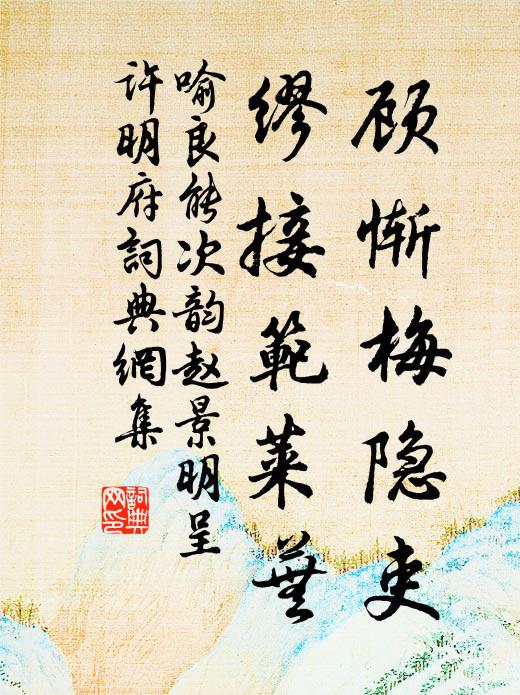 顾惭梅隐吏
缪接範莱蕪
喻良能次韵赵景明呈
许明府詞典網集
詞典网印